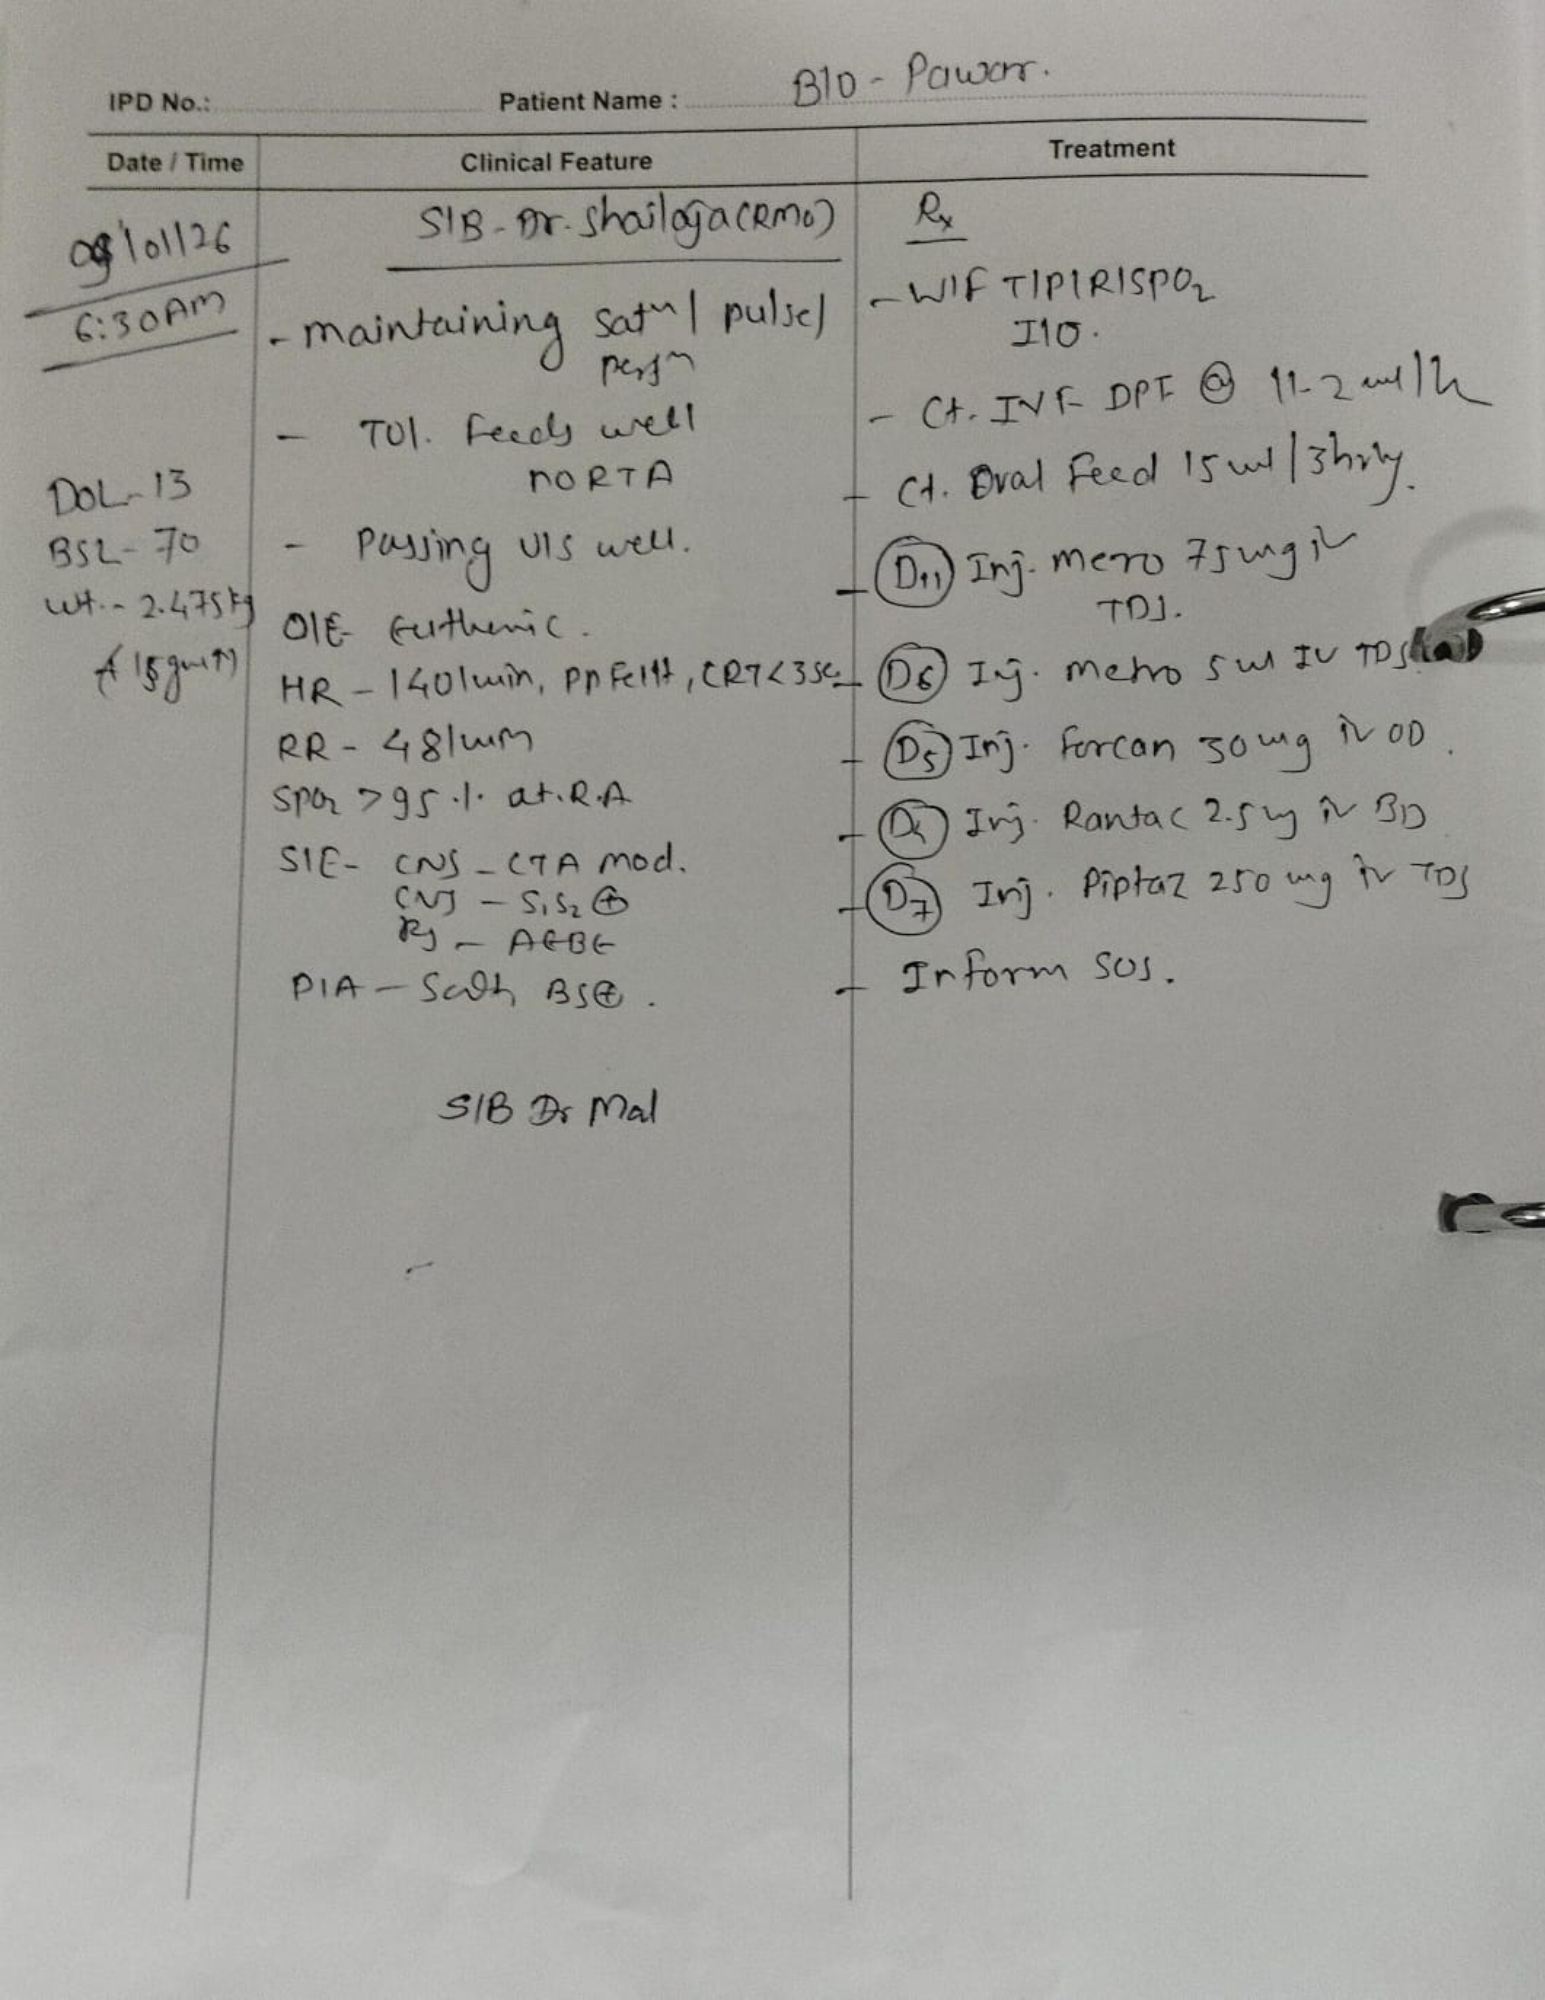 IPD No.: Patient Name : B/O - Pawar.
Date / Time Clinical Feature Treatment
/01/26
6:30AM
DOL-13
BSL- 70
Wt.- 2.475kg
S/B- Dr. Shailaja (RMO)
- maintaining satn / pulse/
perfn
- Tol. Feeds well
no RTA
- Passing U/S well.
O/E- Euthermic.
HR - 140/min, PP Felt, CRT<3sec
RR - 48/min
SpO2 >95 % at. R.A
S/E- CNS - CTA mod.
- S1S2 ⊕
RS - AEBE
P/A - Soft, BS⊕.
S/B Dr Mal
Rx
- W/F T/P/R/SPO2
I/O.
- Ct. IVF DPF @ 11.2 ml/h
- Ct. Oral Feed 15 ml/3hrly.
- D11 Inj. mero 75mg iv
TDS.
- D6 Inj. metro 5 ml IV TDS
- D5 Inj. Forcan 30 mg iv OD.
- Inj. Rantac 2.5 mg iv BD
- D7 Inj. Piptaz 250 mg iv TDS
- Inform SOS.